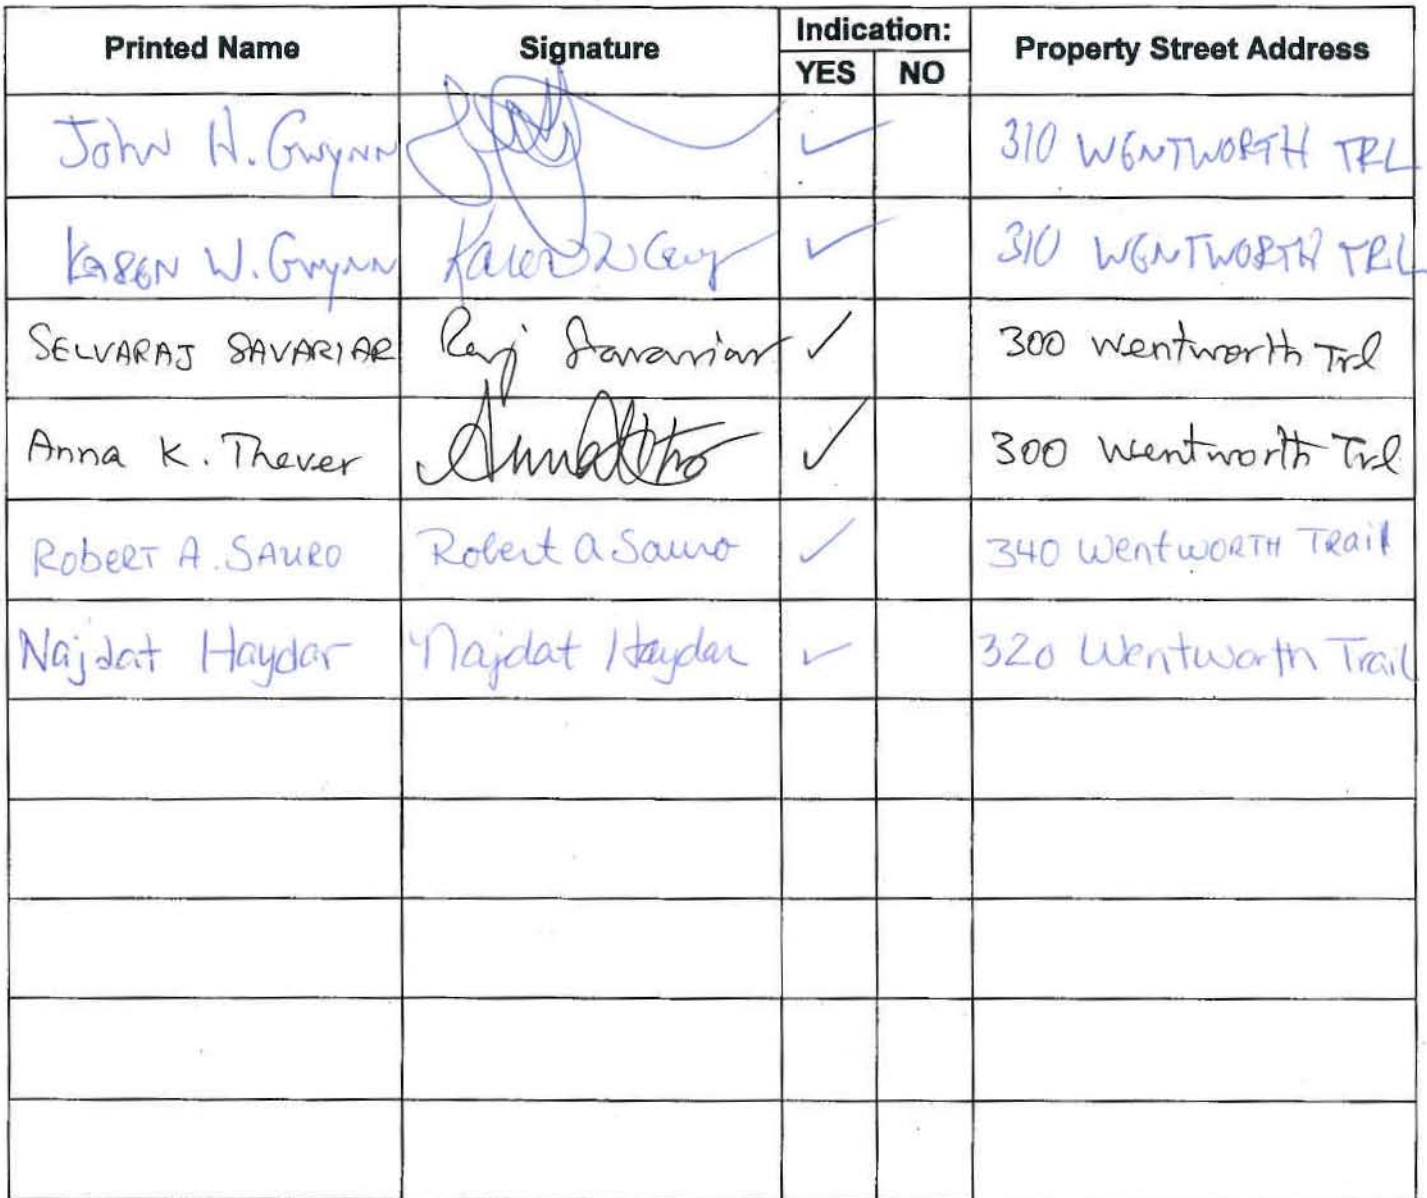 Printed Name Signature Indication: Property Street Address
YES NO
John H. Gwynn ✓ 310 WENTWORTH TRL
KAREN W. Gwynn Karen W Gwy ✓ 310 WENTWORTH TRL
SELVARAJ SAVARIAR Raj Savariar ✓ 300 Wentworth Trl
Anna K. Thever ✓ 300 Wentworth Trl
ROBERT A. SAURO Robert A Sauro ✓ 340 WentwORTH TRail
Najdat Haydar Najdat Haydar ✓ 320 Wentworth Trail